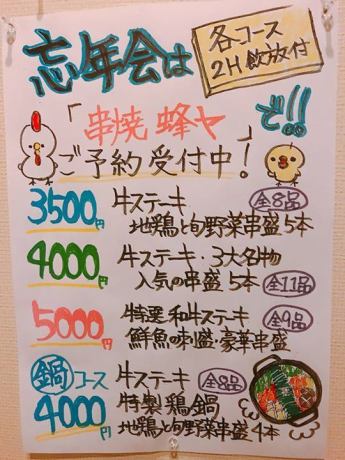 忘年会は
各コース
2H飲放付
「串焼 蜂ヤ」で!!
ご予約受付中!
3500円 牛ステーキ 全8品
地鶏と旬野菜串盛5本
4000円 牛ステーキ・3大名物
人気の串盛5本 全11品
5000円 特選和牛ステーキ 全9品
鮮魚の刺盛・豪華串盛
鍋コース 牛ステーキ 全8品
4000円 特製鶏鍋
地鶏と旬野菜串盛4本